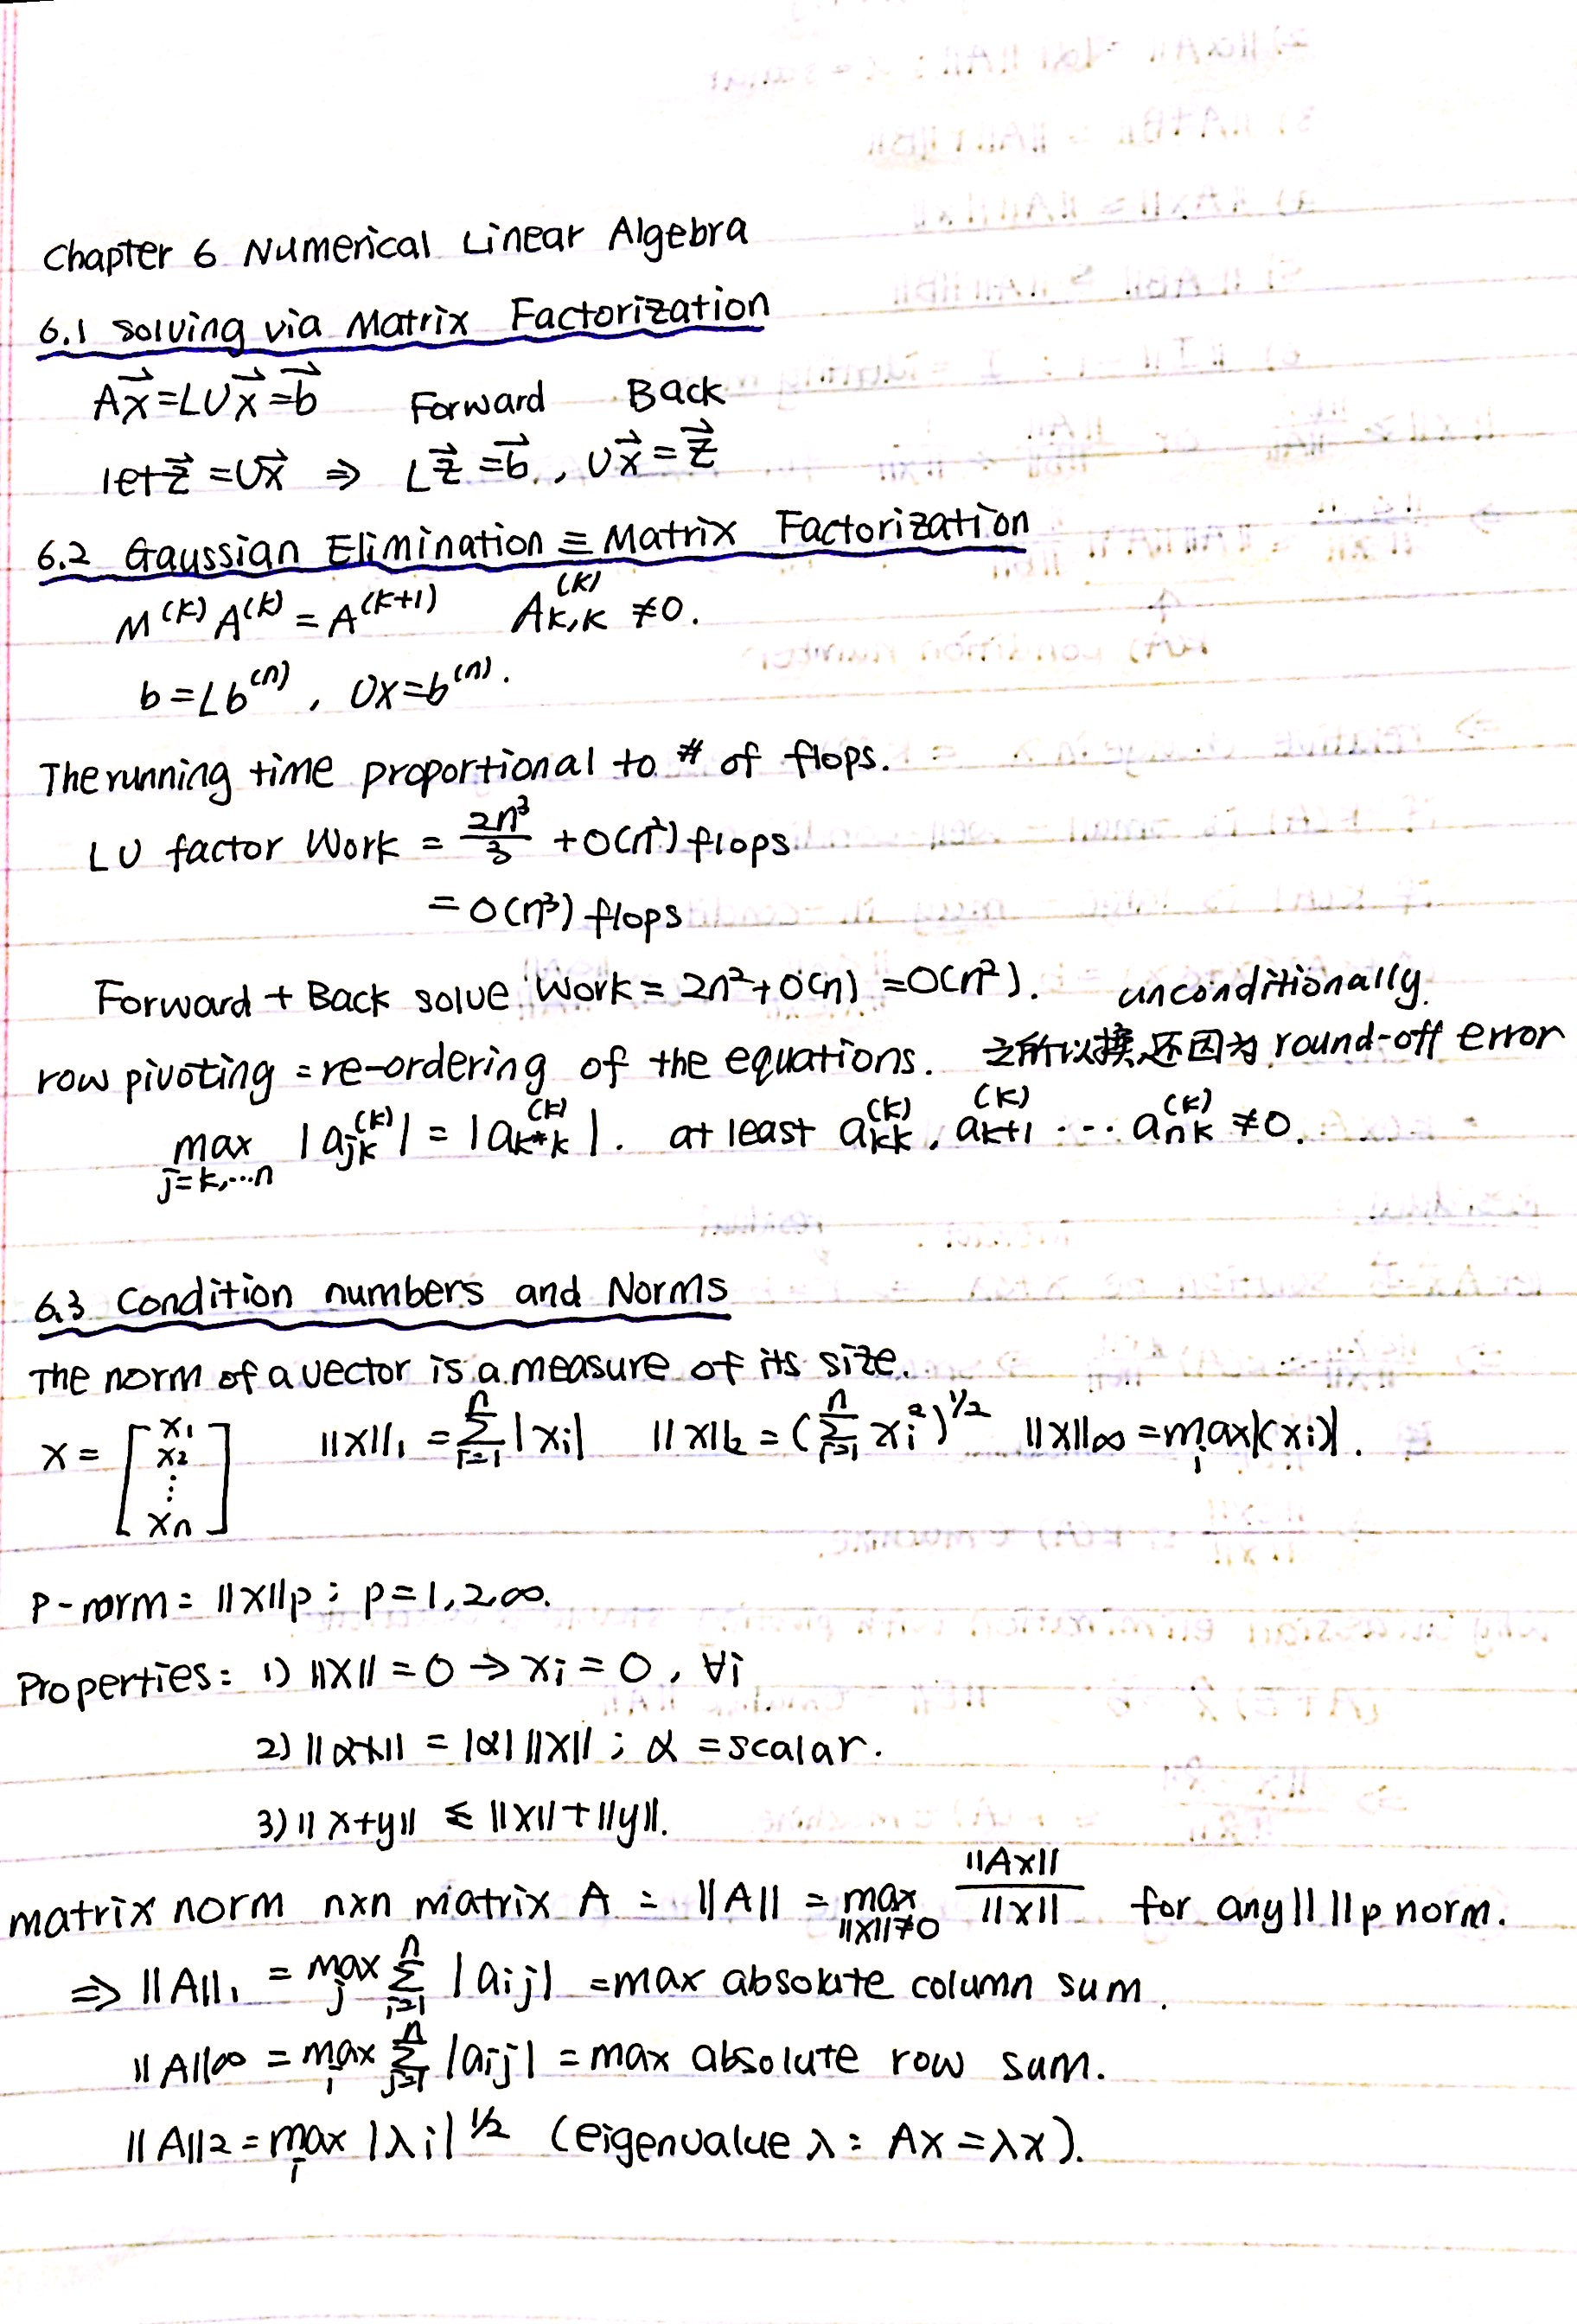 Chapter 6 Numerical Linear Algebra
6.1 Solving via Matrix Factorization
Ax⃗=LUx⃗=b⃗ Forward Back
let z⃗=Ux⃗ ⇒ Lz⃗=b⃗, Ux⃗=z⃗
6.2 Gaussian Elimination ≡ Matrix Factorization
M^(k) A^(k) = A^(k+1) A_{k,k}^(k) ≠0.
b=Lb^(n), Ux=b^(n).
The running time proportional to # of flops.
LU factor Work = 2n³/3 +O(n²) flops
= O(n³) flops
Forward + Back solve Work = 2n²+O(n) =O(n²). unconditionally.
row pivoting = re-ordering of the equations. 之所以换还因为 round-off error
max_{j=k,...n} |a_{jk}^(k)| = |a_{k*k}^(k)|. at least a_{kk}^(k), a_{k+1}^(k) ... a_{nk}^(k) ≠0.
6.3 Condition numbers and Norms
The norm of a vector is a measure of its size.
x = [x1 x2 ⋮ xn] ||x||₁ = Σ_{i=1}^n |xi| ||x||₂ = (Σ_{i=1}^n xi²)^{1/2} ||x||∞ = max_i |(xi)|.
P-norm = ||x||p ; p=1,2,∞.
Properties: 1) ||x|| = 0 → xi = 0, ∀i
2) ||αx|| = |α| ||x|| ; α = scalar.
3) ||x+y|| ≤ ||x|| + ||y||.
matrix norm nxn matrix A : ||A|| = max_{||x||≠0} ||Ax||/||x|| for any || ||p norm.
⇒ ||A||₁ = max_j Σ_{i=1}^n |aij| = max absolute column sum.
||A||∞ = max_i Σ_{j=1}^n |aij| = max absolute row sum.
||A||2 = max_i |λi|^{1/2} (eigenvalue λ: Ax=λx).